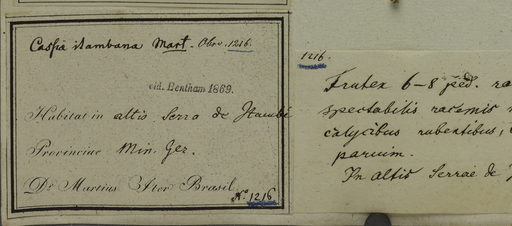 Cassia itambana Mart. Obsv. 1216.
vid. Bentham 1869.
Habitat in altis Serro de Itambé
Provinciae Min. Ger.
Dr. Martius Iter Brasil. No. 1216
1216.
Frutex 6-8 ped. ra
spectabilis racemis
calycibus rubentibus,
parum.
In altis Serrae de